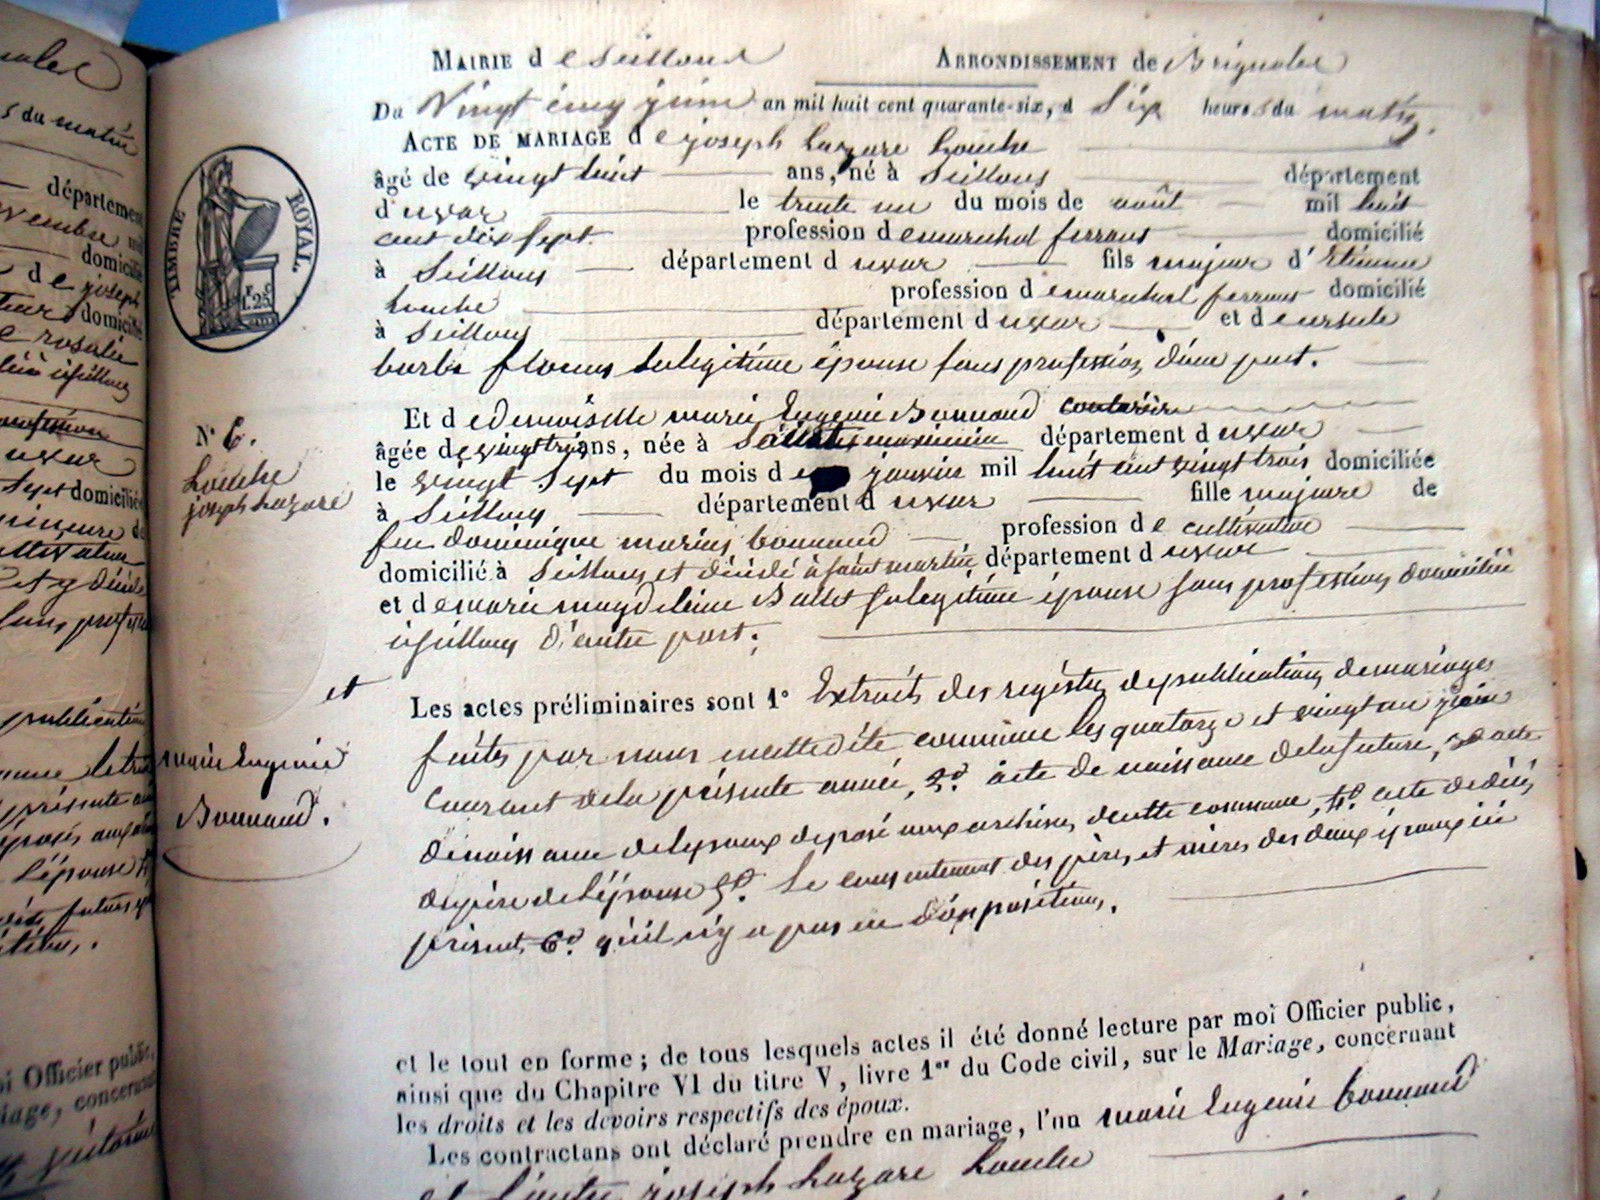 MAIRIE de Seillons ARRONDISSEMENT de Brignoles
Du Vingt cinq juin an mil huit cent quarante-six, à Six heures du matin.
ACTE DE MARIAGE de joseph Lazare Louche
âgé de vingt huit ans, né à Seillons département
du var le trente un du mois de août mil huit
cent dix sept. profession de marechal ferrans domicilié
à Seillons département du var fils majeur d'Etienne
Louche profession de marechal ferrans domicilié
à Seillons département du var et de ursule
barbe sa legitime épouse sans profession d'une part.
Et de demoiselle marie Eugenie Bonnaud couturière
âgée de vingt trois ans, née à Saint maximin département du var
le vingt Sept du mois de janvier mil huit cent vingt trois domiciliée
à Seillons département du var fille majeure de
feu dominique marius bonnaud profession de cultivateur
domicilié à Seillons et décédé à saint martin département du var
et de marie magdeleine Ballet sa legitime épouse sans profession domiciliée
à Seillons d'autre part.
Les actes préliminaires sont 1° Extraits des registres de publications de mariages
faites par nous commune les quatorze et vingt un juin
Courant de la présente année, 2° acte de naissance de la future, 3° acte
de naissance de l'epoux deposé aux archives de cette commune, 4° acte de décès
du père de l'épouse 5° Le consentement des pères et mères des deux époux ici
présents 6° qu'il n'y a pas eu d'oppositions.
et le tout en forme ; de tous lesquels actes il été donné lecture par moi Officier public,
ainsi que du Chapitre VI du titre V, livre 1er du Code civil, sur le Mariage, concernant
les droits et les devoirs respectifs des époux.
Les contractans ont déclaré prendre en mariage, l'un marie Eugenie bonnaud
et l'autre joseph Lazare Louche
TIMBRE ROYAL.
F. C.
1.25
N° 6.
Louche
joseph Lazare
et
marie Eugenie
Bonnaud.
s du matin
département
domicilié
de joseph
domicilié
e rosalie
à Seillons
profession
du var
Sept domiciliée
mineure de
cultivateur
et y décédé
sans profess
publication
présente
l'épouse
Officier public,
iage, concernant